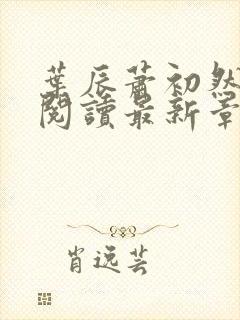 葉辰蕭初然
閱讀最新章
肖逸芸